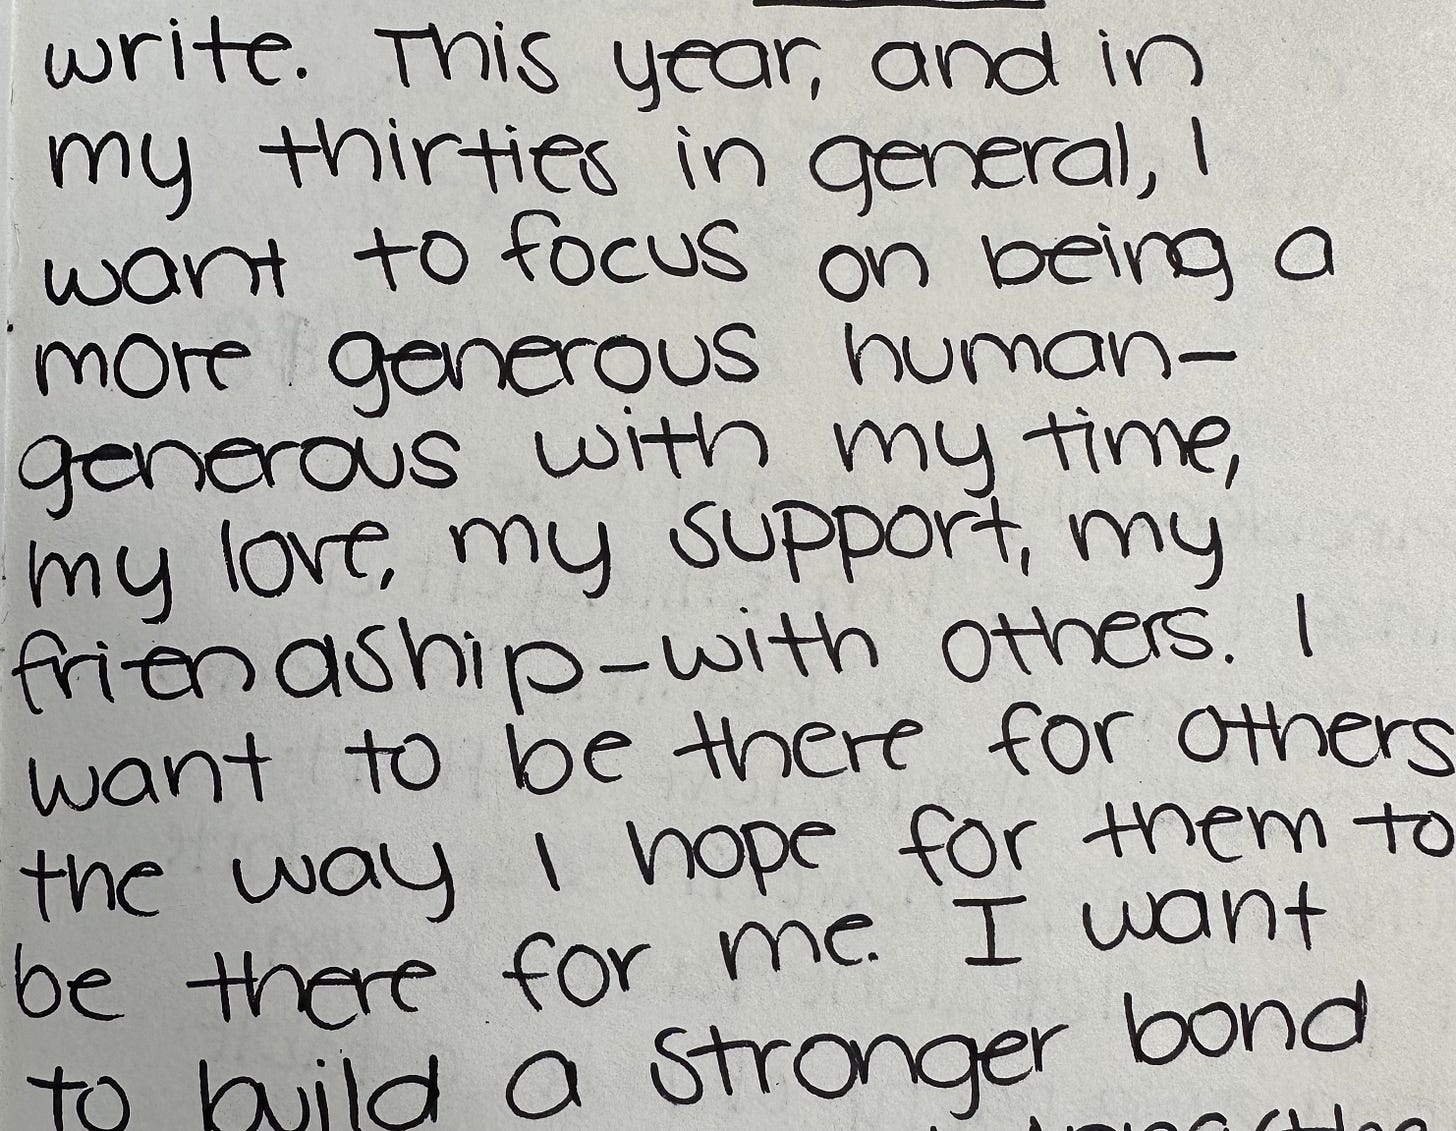 write. This year, and in
my thirties in general, I
want to focus on being a
more generous human—
generous with my time,
my love, my support, my
friendship—with others. I
want to be there for others
the way I hope for them to
be there for me. I want
to build a stronger bond